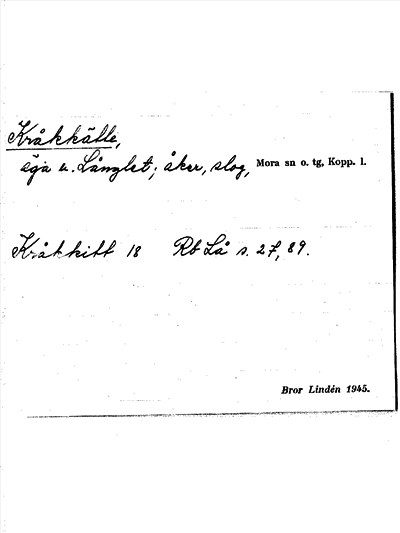 Kråkkälle,
äga u. Långlet; åker, slog, Mora sn o. tg, Kopp. l.
Kråkkitt 18 Rb Lå s. 27, 89.
Bror Lindén 1945.